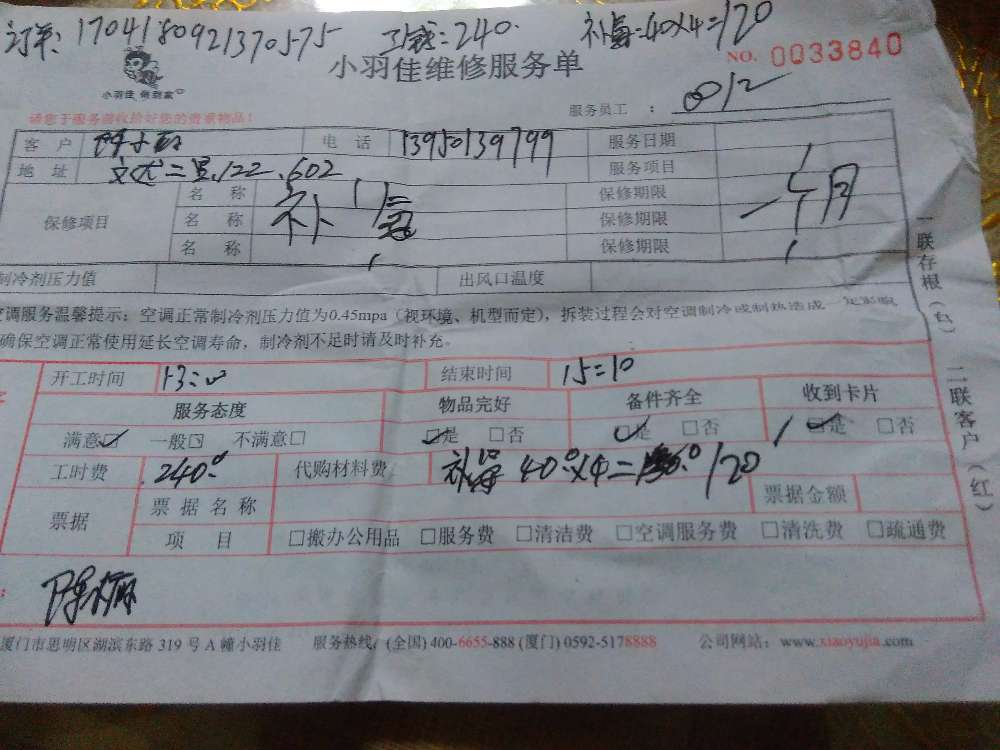 订单:1704180921370575 工钱=240. 补氟=40×4=120
NO. 0033840
小羽佳 做到家
小羽佳维修服务单
服务员工 : 0012
请您于服务前收拾好您的贵重物品!
客 户 电 话 13950139799 服务日期
地 址 文化二里.122.602 服务项目
保修项目 名 称 补氟 保修期限 一个月
名 称 保修期限
名 称 保修期限
制冷剂压力值 出风口温度
空调服务温馨提示:空调正常制冷剂压力值为0.45mpa(视环境、机型而定),拆装过程会对空调制冷或制热造成一定影响
确保空调正常使用延长空调寿命,制冷剂不足时请及时补充。
开工时间 13:00 结束时间 15=10
服务态度 物品完好 备件齐全 收到卡片
满意☑ 一般□ 不满意□ ☑是 □否 ☑是 □否 ☑是 □否
工时费 240.0 代购材料费 40×4= 120
票据 票 据 名 称 票据金额
项 目 □搬办公用品 □服务费 □清洁费 □空调服务费 □清洗费 □疏通费
厦门市思明区湖滨东路 319 号 A 幢小羽佳 服务热线:(全国) 400-6655-888 (厦门) 0592-5178888 公司网站:www.xiaoyujia.com
一联存根(白) 二联客户(红)